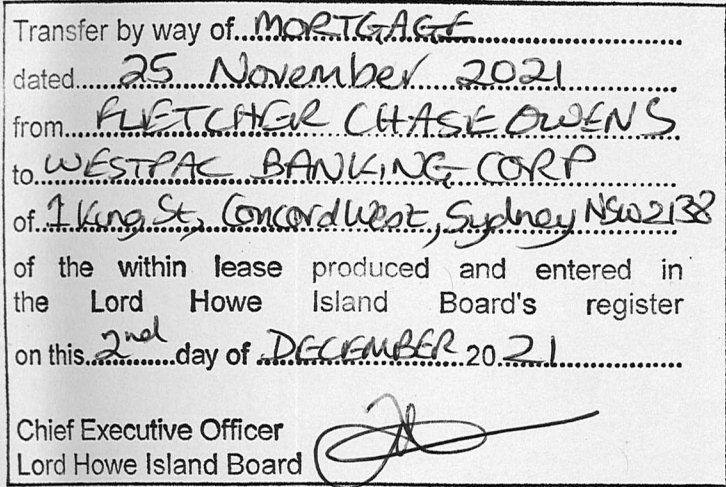 Transfer by way of MORTGAGE
dated 25 November 2021
from FLETCHER CHASE OWENS
to WESTPAC BANKING CORP
of 1 King St, Concord West, Sydney NSW 2138
of the within lease produced and entered in
the Lord Howe Island Board's register
on this 2nd day of DECEMBER 20 21
Chief Executive Officer
Lord Howe Island Board